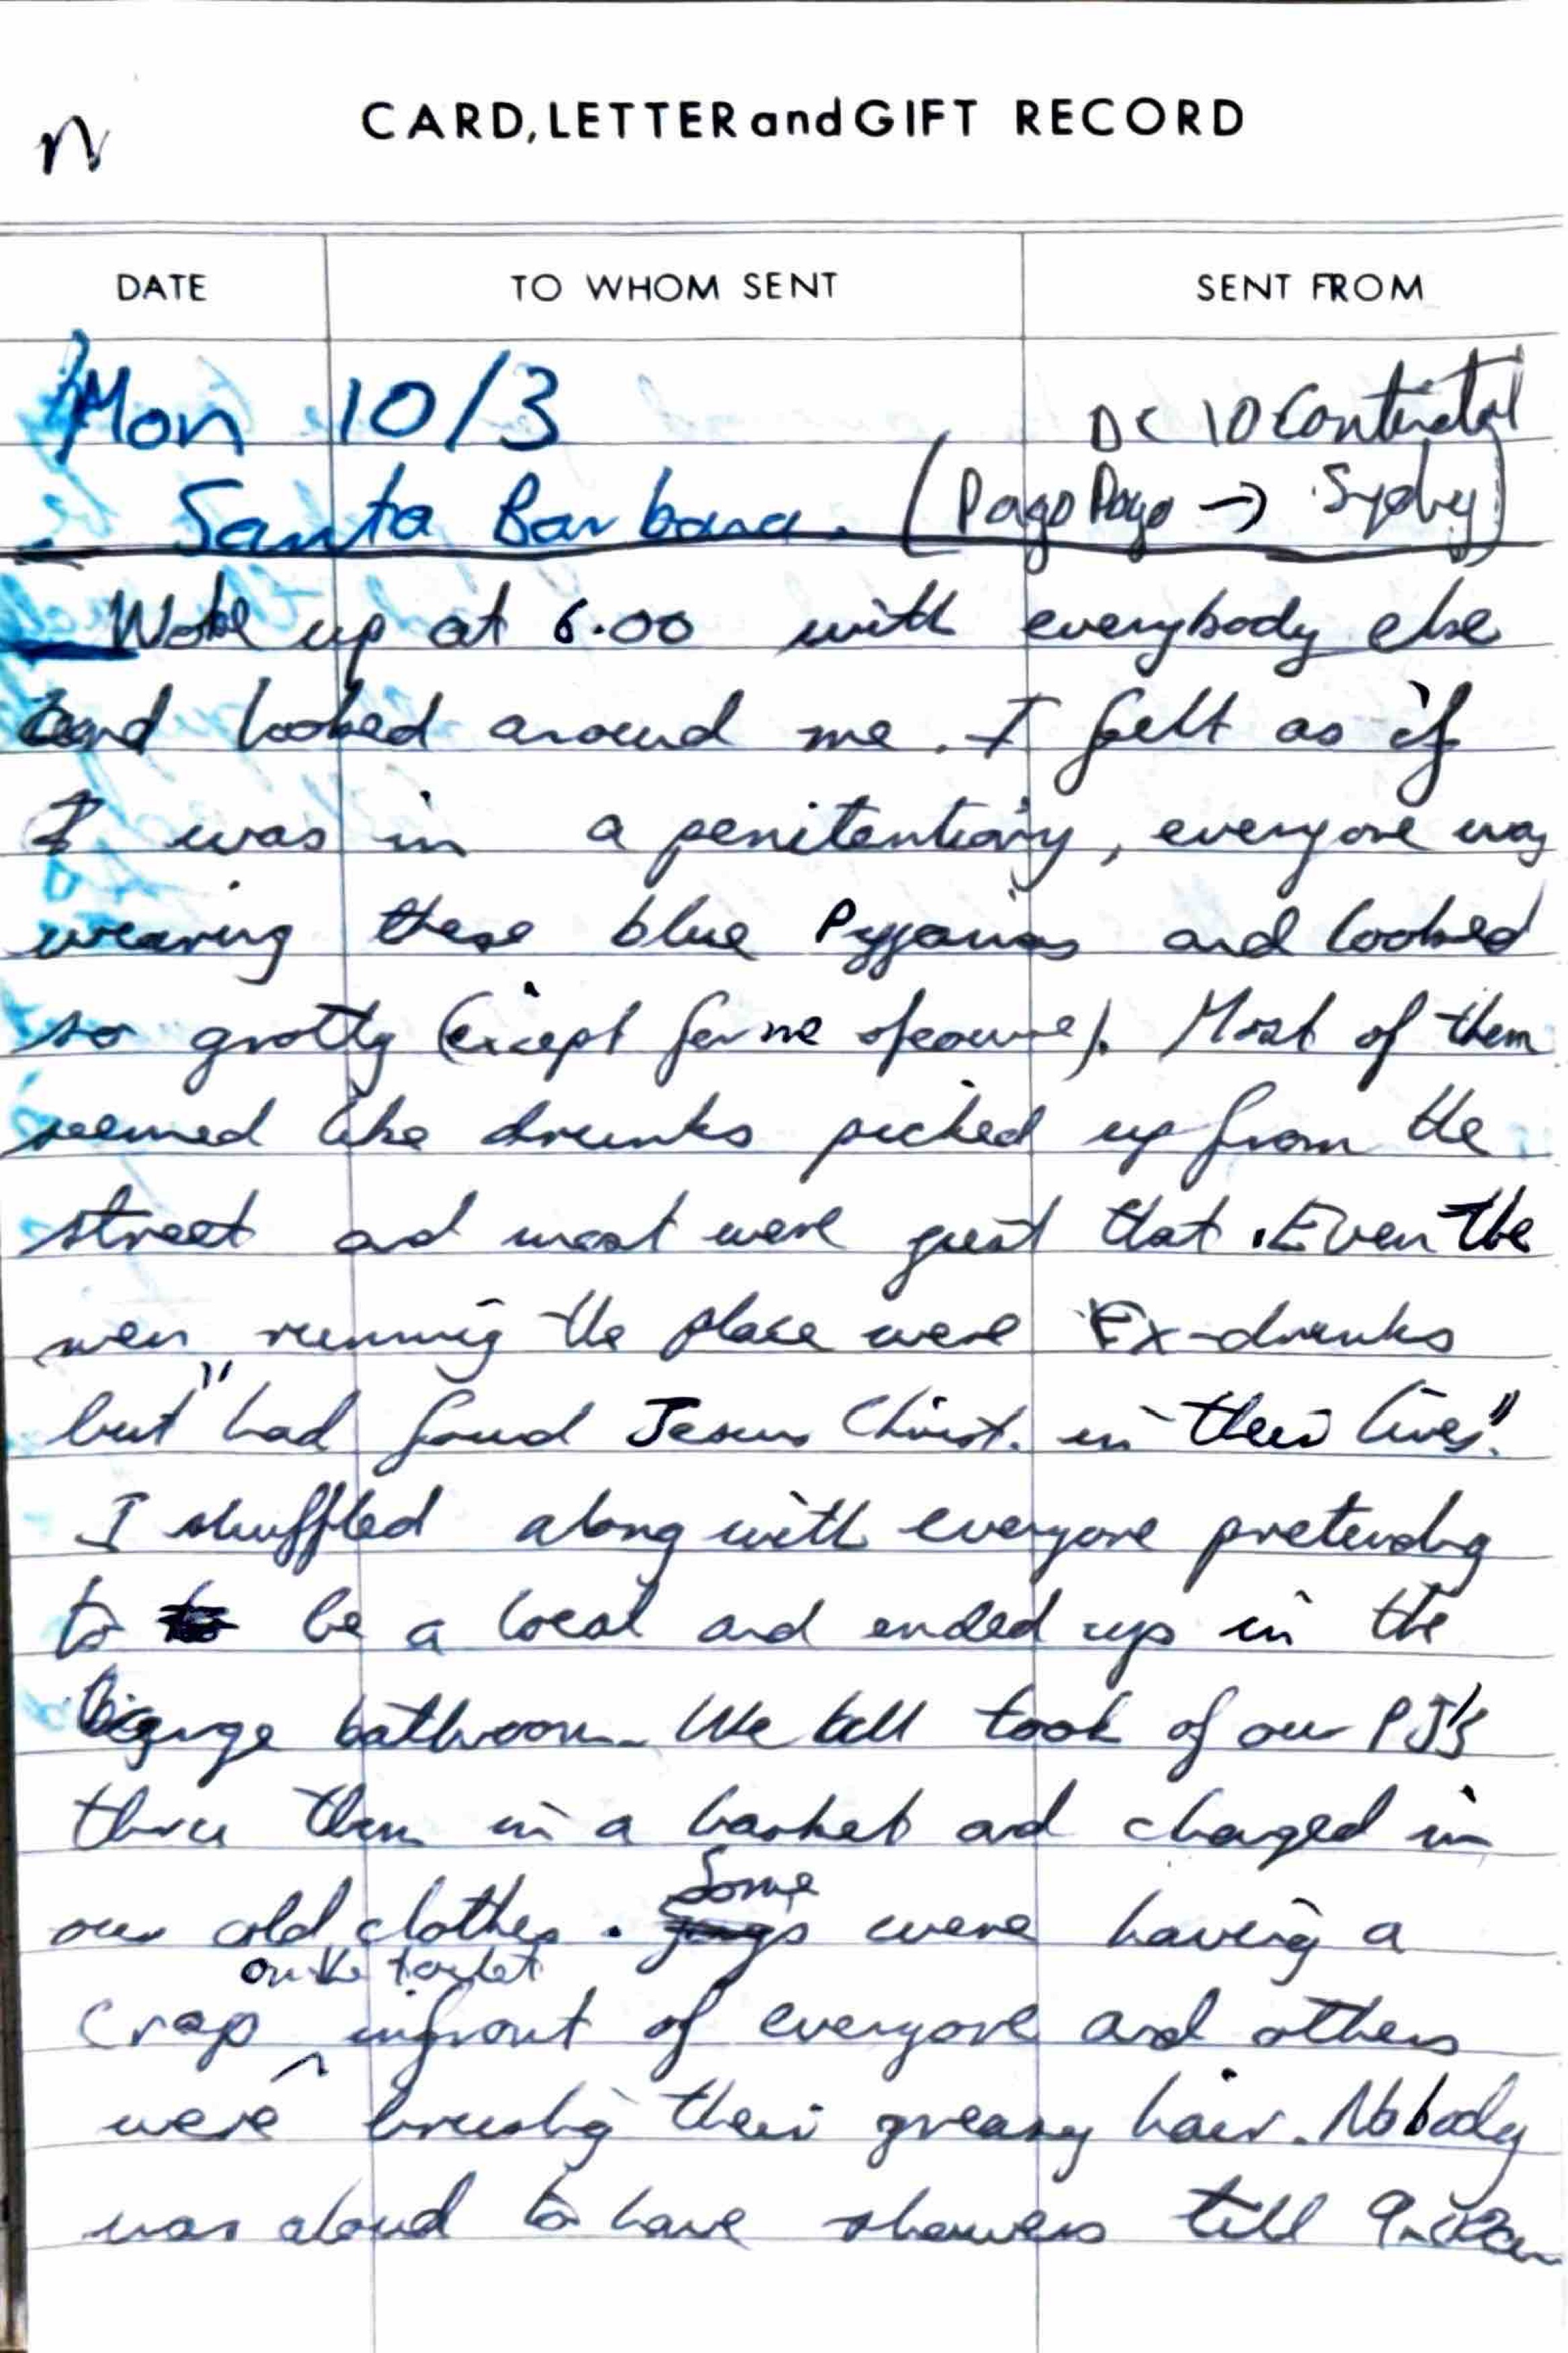 n
CARD, LETTER and GIFT RECORD
DATE TO WHOM SENT SENT FROM
Mon 10/3 DC 10 Continental
Santa Barbara. (Pago Pago → Sydney)
Woke up at 6.00 with everybody else
and looked around me. I felt as if
I was in a penitentiary, everyone was
wearing these blue Pyjamas and looked
so grotty (except for me ofcourse). Most of them
seemed like drunks picked up from the
street and most were just that. Even the
men running the place were Ex-drunks
but "had found Jesus Christ. in their lives".
I shuffled along with everyone pretending
to be a local and ended up in the
bathroom. We all took of our PJ's
threw them in a basket and changed in
our old clothes. Some were having a
crap on the toilet infront of everyone and others
were brushing their greasy hair. Nobody
was aloud to have showers till